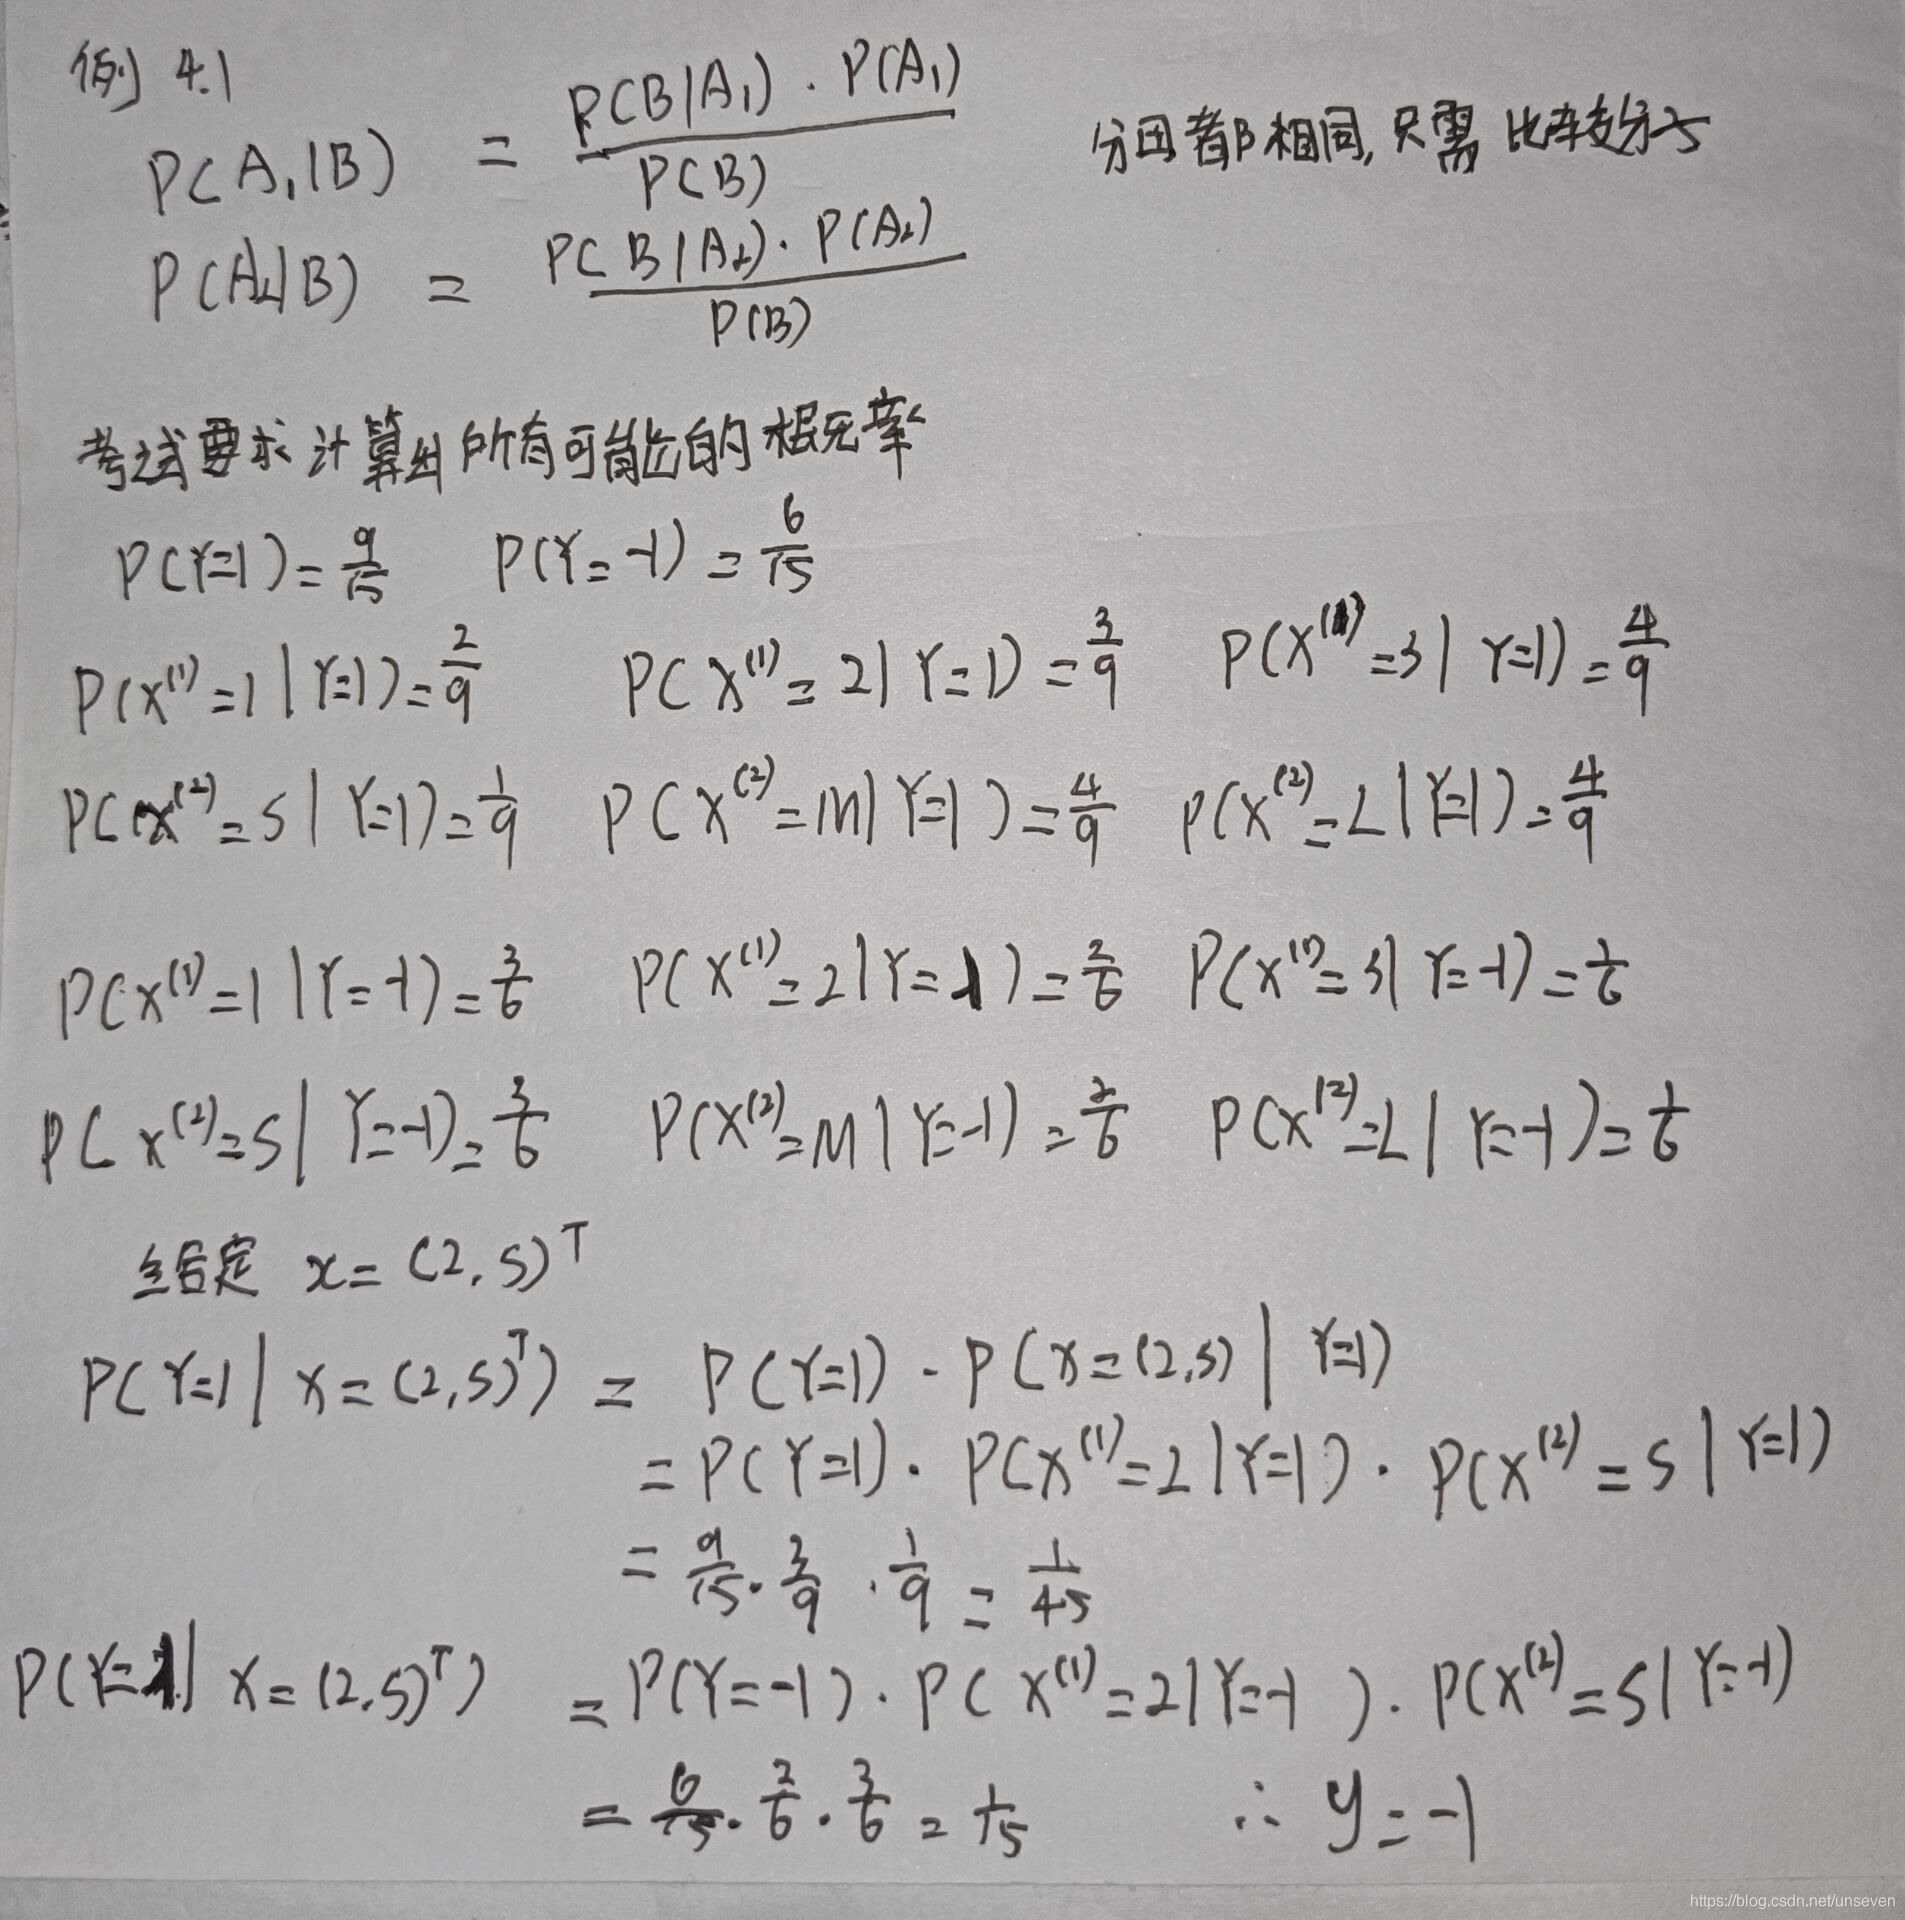 例 4.1
P(A₁|B) = P(B|A₁)·P(A₁) / P(B) 分母都相同,只需比较分子
P(A₂|B) = P(B|A₂)·P(A₂) / P(B)
考试要求计算出所有可能的概率
P(Y=1)=9/15 P(Y=-1)=6/15
P(X⁽¹⁾=1|Y=1)=2/9 P(X⁽¹⁾=2|Y=1)=3/9 P(X⁽¹⁾=3|Y=1)=4/9
P(X⁽²⁾=S|Y=1)=1/9 P(X⁽²⁾=M|Y=1)=4/9 P(X⁽²⁾=L|Y=1)=4/9
P(X⁽¹⁾=1|Y=-1)=3/6 P(X⁽¹⁾=2|Y=-1)=2/6 P(X⁽¹⁾=3|Y=-1)=1/6
P(X⁽²⁾=S|Y=-1)=3/6 P(X⁽²⁾=M|Y=-1)=2/6 P(X⁽²⁾=L|Y=-1)=1/6
给定 x=(2,S)ᵀ
P(Y=1|X=(2,S)ᵀ) = P(Y=1)·P(X=(2,S)|Y=1)
=P(Y=1)·P(X⁽¹⁾=2|Y=1)·P(X⁽²⁾=S|Y=1)
=9/15·3/9·1/9=1/45
P(Y=-1|X=(2,S)ᵀ) =P(Y=-1)·P(X⁽¹⁾=2|Y=-1)·P(X⁽²⁾=S|Y=-1)
=6/15·2/6·3/6=1/15 ∴ y=-1
https://blog.csdn.net/unseven